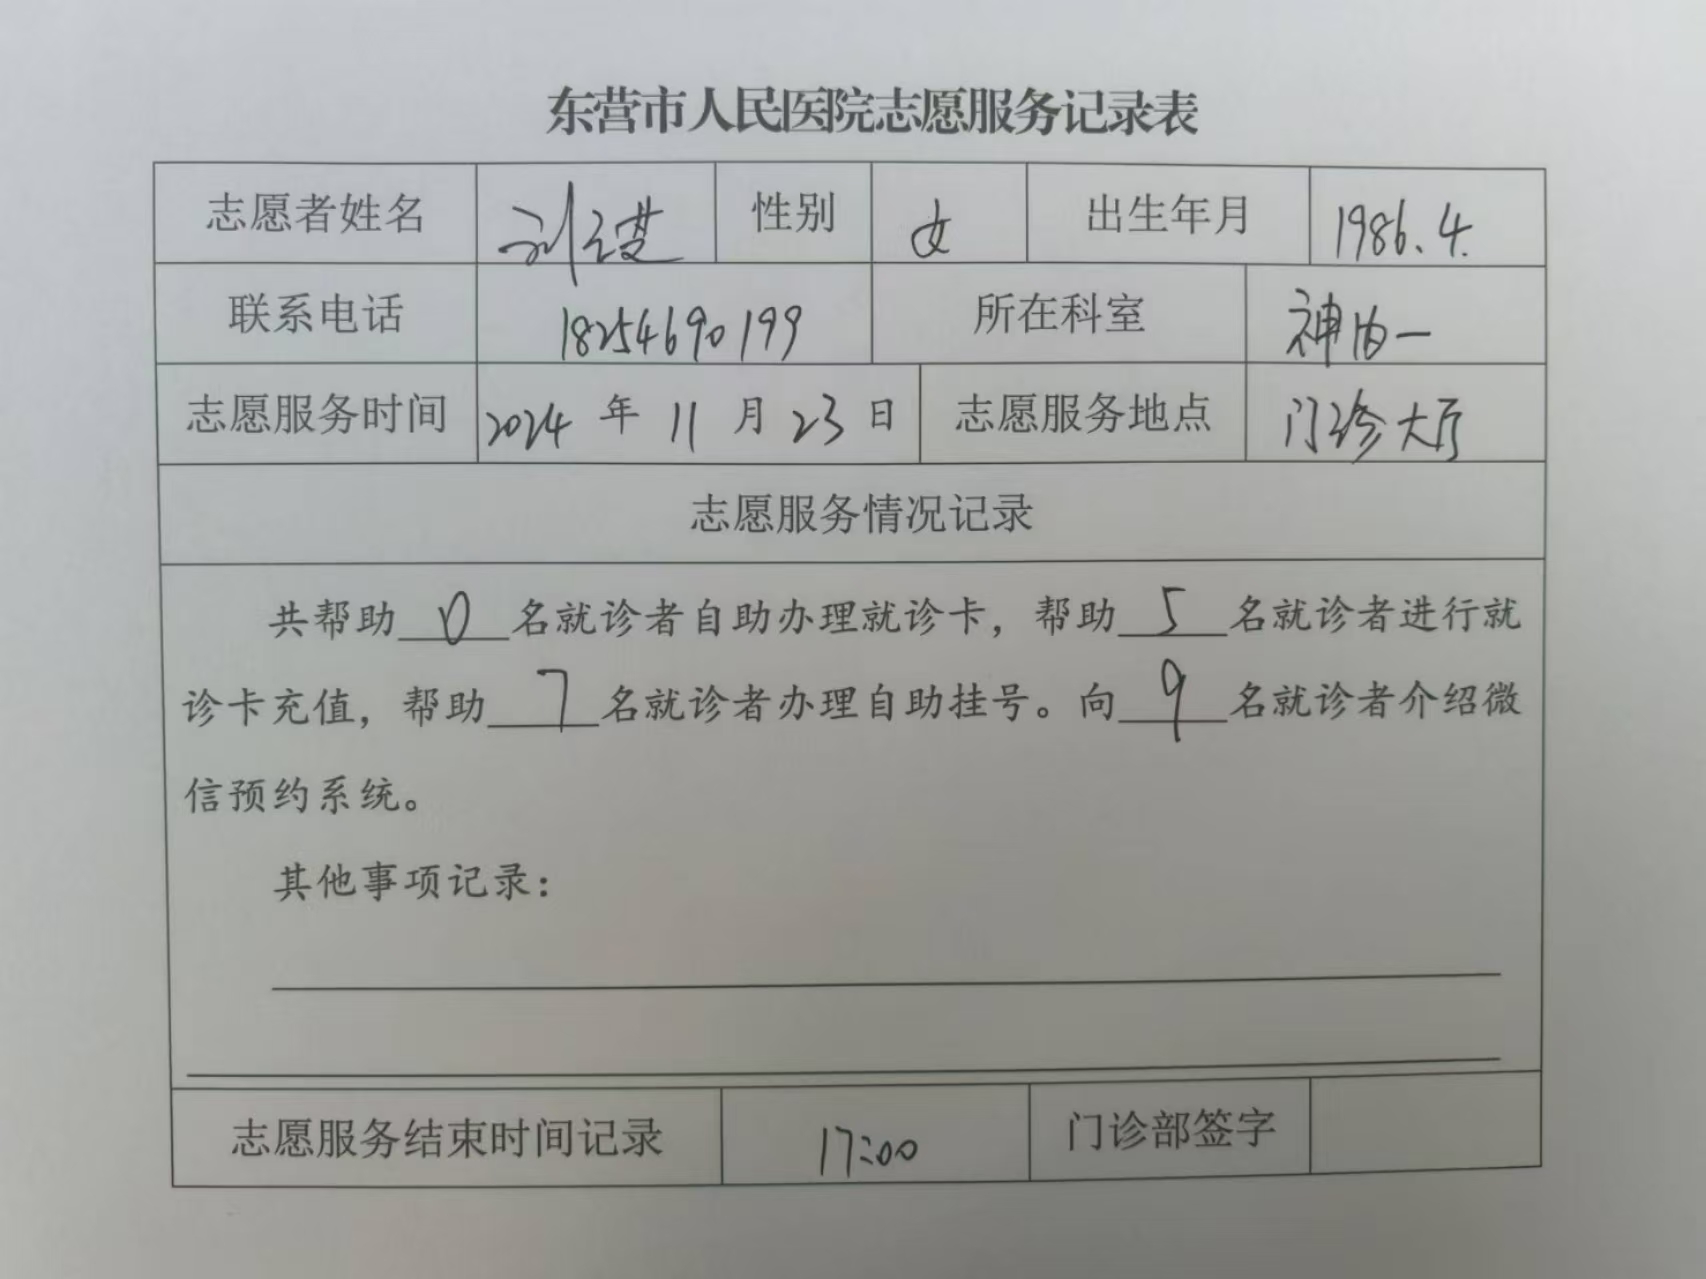 东营市人民医院志愿服务记录表
志愿者姓名 刘 性别 女 出生年月 1986.4.
联系电话 18254690199 所在科室 神内一
志愿服务时间 2024 年 11 月 23 日 志愿服务地点 门诊大厅
志愿服务情况记录
共帮助 0 名就诊者自助办理就诊卡，帮助 5 名就诊者进行就
诊卡充值，帮助 7 名就诊者办理自助挂号。向 9 名就诊者介绍微
信预约系统。
其他事项记录：
志愿服务结束时间记录 17:00 门诊部签字